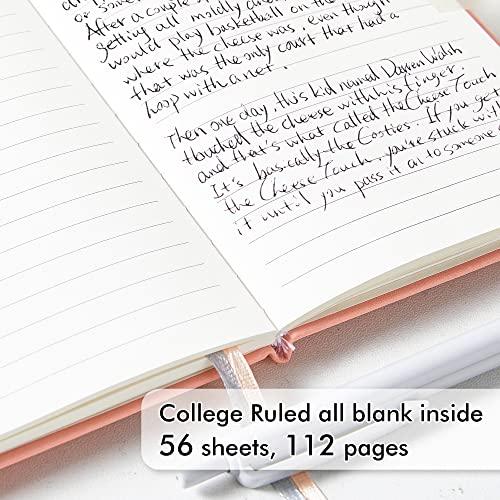 After a couple
getting all moldy and
would play basketball on the
where the cheese was, even though
that was the only court that had a
hoop with a net.
Then one day, this kid named Darren Walsh
touched the cheese with his finger.
and that's what called the Cheese Touch
It's basically the Cooties. If you get
the Cheese Touch, you're stuck with
it until you pass it on to someone
College Ruled all blank inside
56 sheets, 112 pages